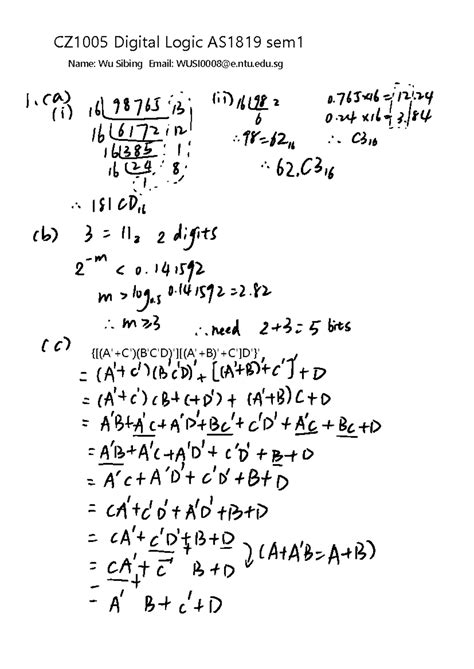 CZ1005 Digital Logic AS1819 sem1
Name: Wu Sibing Email: WUSI0008@e.ntu.edu.sg
1. (a)
(i) 16 98765 13
16 6172 12
16 385 1
16 24 8
1
∴ 181CD₁₆
(ii) 16 98 2
6
∴ 98 = 62₁₆
0.765×16 = 12.24
0.24×16 = 3.84
∴ C3₁₆
∴ 62.C3₁₆
(b) 3 = 11₂ 2 digits
2⁻ᵐ < 0.141592
m > log₀.₅ 0.141592 = 2.82
∴ m ≥ 3 ∴ need 2+3 = 5 bits
(c) {[(A'+C')(B'C'D)'][(A'+B)'+C']D'}'
= (A'+C')(B'C'D)' + [(A'+B)'+C']' + D
= (A'+C')(B+C+D') + (A'+B)C + D
= A'B+A'C+A'D'+BC'+C'D'+A'C+BC+D
= A'B+A'C+A'D'+C'D'+B+D
= A'C+A'D'+C'D'+B+D
= CA'+C'D'+A'D'+B+D
= CA'+C'D'+B+D
= CA'+C'+B+D (A+A'B=A+B)
= A'+B+C'+D